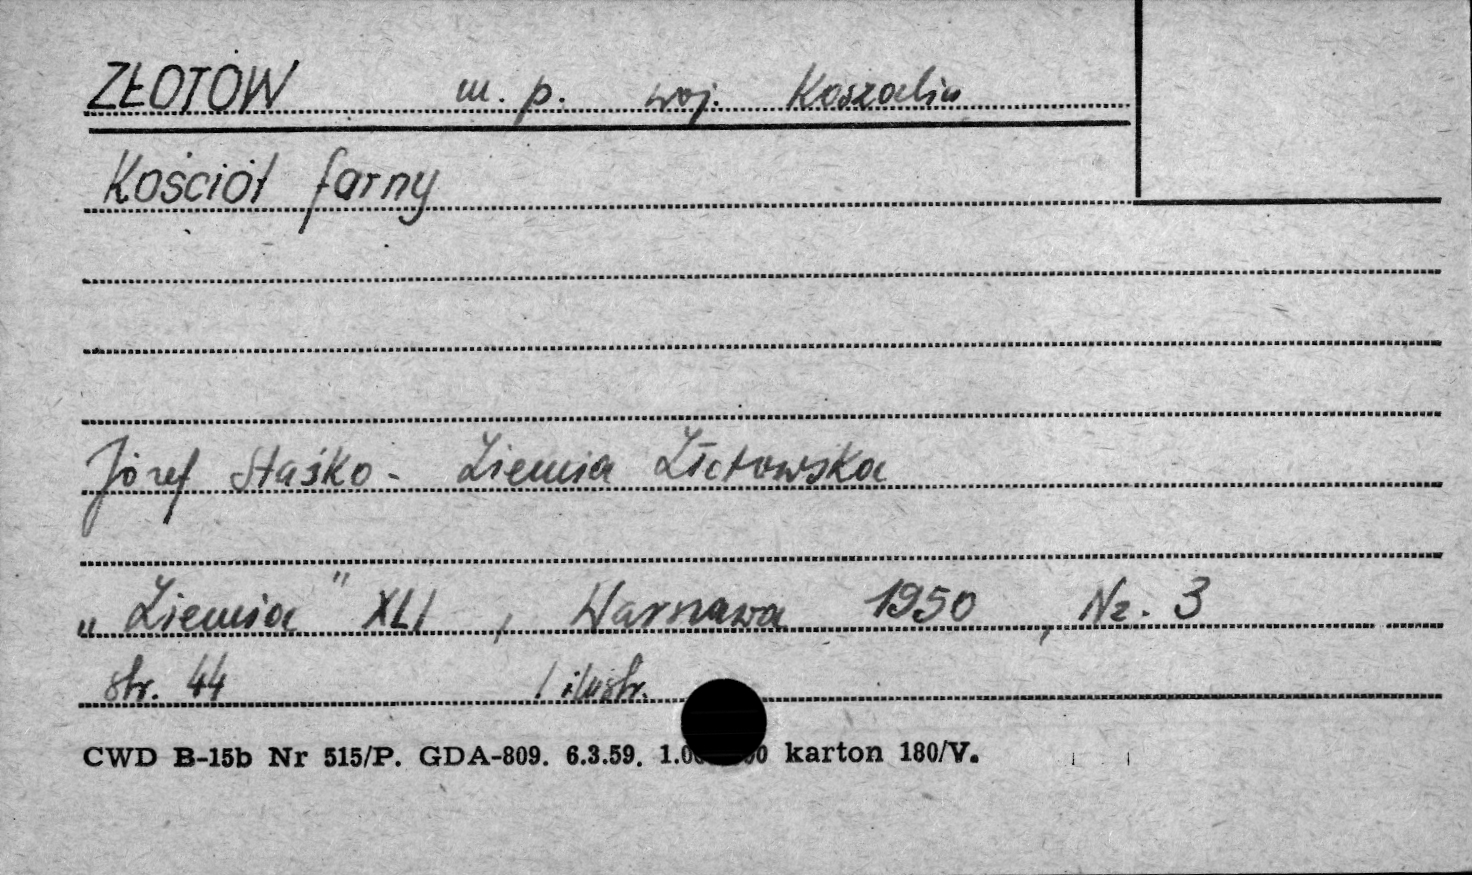 ZŁOTÓW m. p. woj. Koszalin
Kościół farny
Józef Staśko - Ziemia Złotowska
„Ziemia" XLI , Warszawa 1950 , Nr. 3
str. 44 1 ilustr.
CWD B-15b Nr 515/P. GDA-809. 6.3.59. karton 180/V.